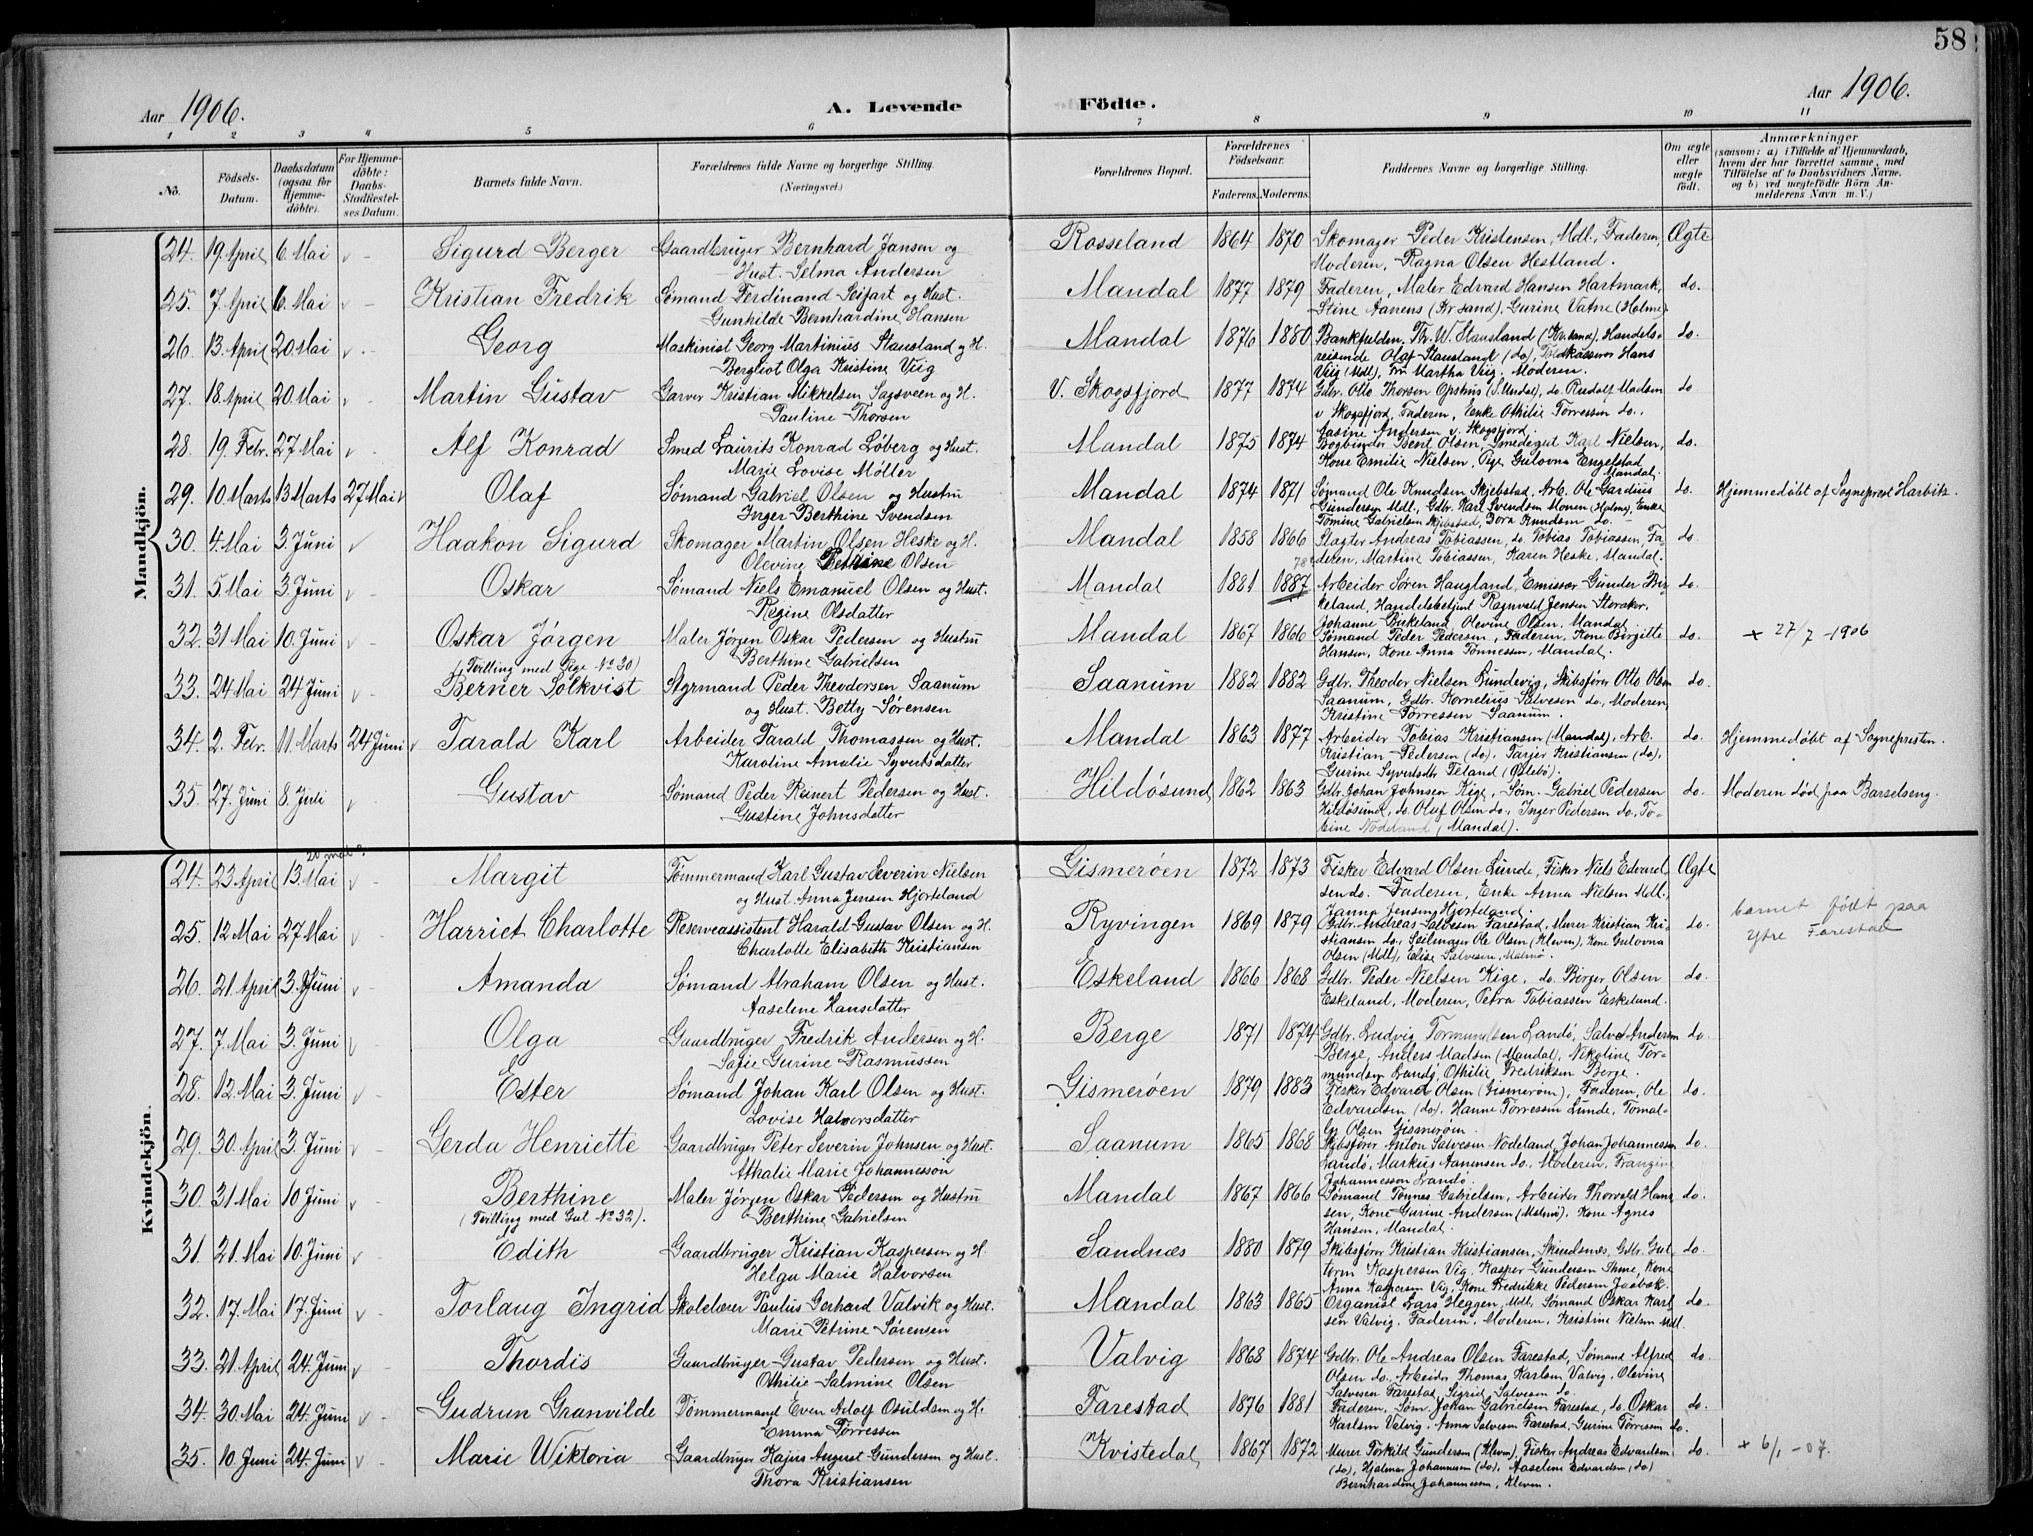 58
Aar 1906. A. Levende Födte. Aar 1906.
1 2 3 4 5 6 7 8 9 10 11
No. Födsels-Datum. Daabsdatum (ogsaa for Hjemmedöbte). For Hjemmedöbte: Daabs-Stadfæstelses Datum. Barnets fulde Navn. Forældrenes fulde Navne og borgerlige Stilling. (Næringsvei.) Forældrenes Bopæl. Forældrenes Födselsaar. Faderens. Moderens. Faddernes Navne og borgerlige Stilling. Om ægte eller uægte födt. Anmærkninger (saasom: a) i Tilfælde af Hjemmedaab, hvem der har forrettet samme, med Tilföielse af to Daabsvidners Navne, og b) ved uægtefödte Börn Anmelderens Navn m. V.)
Mandkjön.
24. 19 April 6 Mai Sigurd Berger Gaardbruger Bernhard Jansen og Rosseland 1864 1870 Skomager Peder Kristensen, Mdl., Faderen, Ægte
Hust. Selma Andersen Moderen, Ragna Olsen Hestland.
25. 7 April 6. Mai Kristian Fredrik Sømand Ferdinand Seifart og Hust. Mandal 1877 1879 Faderen, Maler Edvard Hansen Hartmark, do.
Gunhilde Bernhardine Hansen Stine Aanens (Kr.sand), Gurine Vatne (Holme).
26. 13. April 20. Mai Georg Maskinist Georg Martinius Stausland og H. Mandal 1876 1880 Bankfuldm. Th. W. Stausland (Kr.sand), Handels- do.
Bergliot Olga Kristine Viig reisende Olaf Stausland (do), Toldkasserer Hans
Viig (Mdl), Fru Martha Viig. Moderen.
27. 18. April 20. Mai Martin Gustav Garver Kristian Mikkelsen Sagsveen og H. V. Skogsfjord 1877 1874 Gdbr. Otto Thorsen Opshus (S. Undal), do. Rudolf Madsen do
Pauline Thorsen v Skogsfjord, Faderen, Enke Othilie Torressen do.,
Aasine Andersen v. Skogsfjord.
28. 19. Febr. 27 Mai Alf Konrad Smed Laurits Konrad Løberg og Hust. Mandal 1875 1874 Bogbinder Bent Olsen, Smedegut Karl Nielsen, do.
Marie Lovise Møller Kone Emilie Nielsen, Pige Gulovna Engelstad
Mandal.
29. 10 Marts 13 Marts 27 Mai Olaf Sømand Gabriel Olsen og Hustru Mandal 1874 1871 Sømand Ole Knudsen Skjebstad, Arb. Ole Gardius do. Hjemmedøbt af Sogneprest Harbitz.
Inger Berthine Svendsen Gundersen Mdl., Gdbr. Karl Svendsen Monen (Holme), Enke
Tomine Gabrielsen Skjebstad, Bora Knudsen do.
30. 4. Mai 3. Juni Haakon Sigurd Skomager Martin Olsen Heske og H. Mandal 1858 1866 Slagter Andreas Tobiassen, do Tobias Tobiassen, Fa- do.
Olevine Petrine Olsen deren, Martine Tobiassen, Karen Heske, Mandal.
31. 5. Mai 3. Juni Oskar Sømand Niels Emanuel Olsen og Hust. Mandal 1881 1887 78 Arbeider Søren Haugland, Emissær Gunder Bir- do.
Regine Olsdatter keland, Handelsbetjent Ragnvald Jensen Storaker,
Johanne Birkeland, Olevine Olsen, Mandal
32. 31 Mai 10. Juni Oskar Jørgen Maler Jørgen Oskar Pedersen og Hustru Mandal 1867 1866 Sømand Peder Pedersen, Faderen, Kone Birgitte do. + 27/7 -1906
(Tvilling med Pige No 30) Berthine Gabrielsen Hansen, Kone Anna Tønnessen, Mandal.
33. 24 Mai 24 Juni Berner Solkvist Styrmand Peder Theodorsen Saanum Saanum 1882 1882 Gdbr. Theodor Nielsen Lundevig, Skibsfører Otto Olsen do.
og Hust. Betty Sørensen Saanum, Gdbr. Kornelius Salvesen do, Moderen,
Kristine Torressen Saanum.
34. 2. Febr. 11. Marts 24 Juni Tarald Karl Arbeider Tarald Thomassen og Hust. Mandal 1863 1877 Arbeider Tobias Kristiansen (Mandal), Arb. do. Hjemmedøbt af Sognepresten.
Karoline Amalie Syvertsdatter Kristian Pedersen (do), Tarjer Kristiansen (do),
Gurine Syvertsdtr Teland (Øslebø).
35. 27. Juni 8. Juli Gustav Sømand Peder Reinert Pedersen og Hust. Hildøsund 1862 1863 Gdbr. Johan Johnsen Kige, Søm. Gabriel Pedersen do. Moderen død paa Barselseng.
Gustine Johnsdatter Hildøsund, do. Olaf Olsen do., Inger Pedersen do, To-
bine Nødeland (Mandal).
Kvindekjön.
20 mai?
24. 23 April 13. Mai Margit Tømmermand Karl Gustav Severin Nielsen Gismerøen 1872 1873 Fisker Edvard Olsen Lunde, Fisker Niels Edvard- Ægte
og Hust. Anna Jensen Hjorteland sen do. Faderen, Enke Anna Nielsen Mdl.
Janna Jensen Hjorteland.
25. 12 Mai 27 Mai Harriet Charlotte Reserveassistent Harald Gustav Olsen og H. Ryvingen 1869 1879 Gdbr. Andreas Salvesen Farestad, Murer Kristian Kri- do. barnet født paa
Charlotte Elisabeth Kristiansen stiansen do, Seilmager Ole Olsen (Kleven), Kone Gulovna Ytre Farestad
Olsen (Mdl), Elise Salvesen, Malmø.
26. 21 April 3. Juni Amanda Sømand Abraham Olsen og Hust. Eskeland 1866 1868 Gdbr. Peder Nielsen Kige, do. Birger Olsen do.
Aaselene Hansdatter Eskeland, Moderen, Petra Tobiassen Eskeland.
27. 7 Mai 3. Juni Olga Gaardbruger Fredrik Andersen og H. Berge 1871 1874 Gdbr. Ludvig Tormundsen Landø, Salve Andersen do.
Safie Gurine Rasmussen Berge, Anders Madsen (Mandal), Nikoline Tor-
mundsen Landø, Othilie Fredriksen Berge.
28. 12. Mai 3. Juni Ester Sømand Johan Karl Olsen og Hust. Gismerøen 1879 1883 Fisker Edvard Olsen (Gismerøen), Faderen, Ole do.
Lovise Halvorsdatter Edvardsen (do), Hanne Torressen Lunde, Tomal-
Olsen Gismerøen.
29. 30. April 3. Juni Gerda Henriette Gaardbruger Peter Severin Johnsen og Hust. Saanum 1865 1868 Skibsfører Anton Salvesen Nødeland, Johan Johannessen do.
Athalie Marie Johannessen Landø, Markus Aanensen do, Moderen, Frangine
Johannessen Landø.
30. 31 Mai 10 Juni Berthine Maler Jørgen Oskar Pedersen og Hustru Mandal 1867 1866 Sømand Tønnes Gabrielsen, Arbeider Thorvald Han- do.
(Tvilling med Gut No 32). Berthine Gabrielsen sen, Kone Gurine Andersen (Malmø), Kone Agnes
Hansen, Mandal.
31. 21. Mai 10. Juni Edith Gaardbruger Kristian Kaspersen og H. Sandnæs 1880 1879 Skibsfører Kristian Kristiansen, Skindsnes, Gdbr. Gut- do.
Helga Marie Halvorsen torm Kaspersen Vig, Kasper Gundersen Ihme, Kone
Anna Kaspersen Vig, Kone Fredrikke Pedersen Jaabæk.
32. 17. Mai 17. Juni Torlaug Ingrid Skolelærer Paulus Gerhard Valvik og Hust. Mandal 1863 1865 Organist Lars Heggen, Mdl. Sømand Oskar Karl- do.
Marie Petrine Sørensen sen Valvig, Faderen, Moderen, Kristine Nielsen Mdl.
33. 21. April 24. Juni Thordis Gaardbruger Gustav Pedersen og Hust. Valvig 1868 1874 Gdbr. Ole Andreas Olsen Farestad, Sømand Alfred do.
Othilie Salmine Olsen Olsen do. Arbeider Thomas Karlsen Valvig, Olevine
Salvesen Farestad, Sigrid Salvesen do.
34. 30. Mai 24. Juni Gudrun Granvilde Tømmermand Even Adolf Osuldsen og H. Farestad 1876 1881 Faderen, Søm. Johan Gabrielsen Farestad, do. Oskar do.
Emma Torressen Karlsen Valvig, Anna Salvesen Farestad, Gurine Torressen do.
35. 10. Juni 24. Juni Marie Wiktoria Gaardbruger Kajus August Gundersen og Hust. Kvistedal 1867 1872 Murer Torkild Gundersen (Kleven), Fisker Andreas Edvardsen do. + 6/1 -07.
Thora Kristiansen (do), Hjalmar Johannessen (do), Aaselene Edvardsen (do)
Bernhardine Johannessen, Kleven.